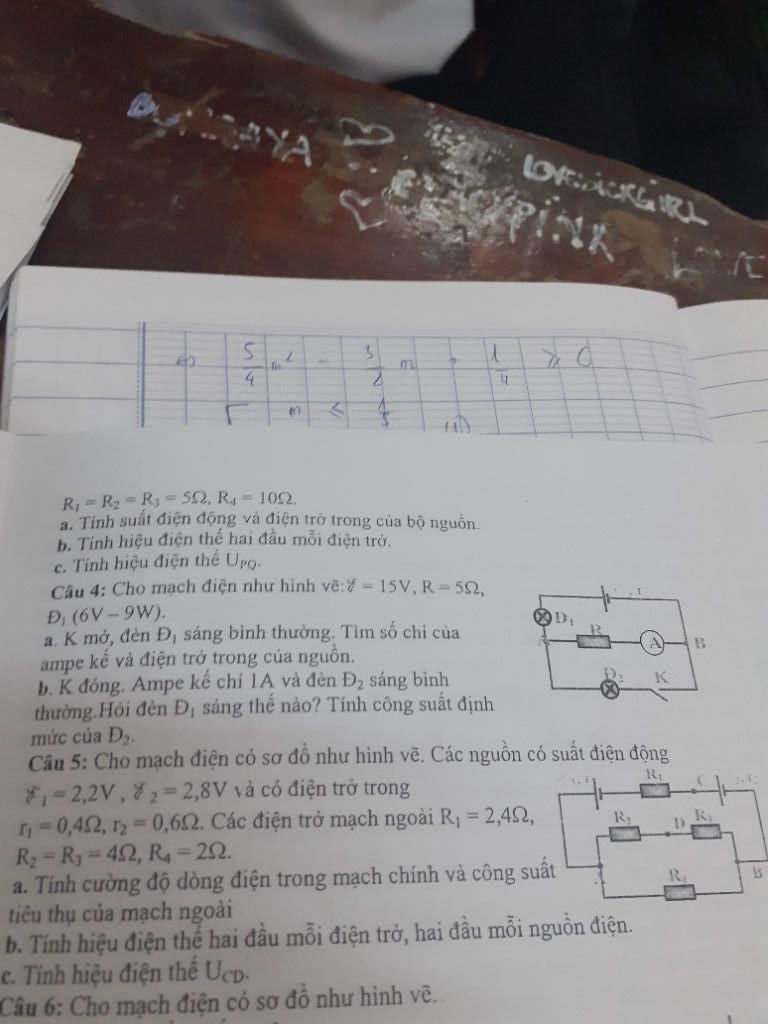 AYA
LOVESICKGIRL
PINK
⇔ 5/4 m² - 3/2 m + 1/4 ≥ 0
m ≤ 1/5
(1)
R₁ = R₂ = R₃ = 5Ω, R₄ = 10Ω.
a. Tính suất điện động và điện trở trong của bộ nguồn.
b. Tính hiệu điện thế hai đầu mỗi điện trở.
c. Tính hiệu điện thế U_PQ.
Câu 4: Cho mạch điện như hình vẽ: ℰ = 15V, R = 5Ω,
Đ₁ (6V – 9W).
a. K mở, đèn Đ₁ sáng bình thường. Tìm số chỉ của
ampe kế và điện trở trong của nguồn.
b. K đóng. Ampe kế chỉ 1A và đèn Đ₂ sáng bình
thường.Hỏi đèn Đ₁ sáng thế nào? Tính công suất định
mức của Đ₂.
Đ₁
R
A
B
Đ₂
K
Câu 5: Cho mạch điện có sơ đồ như hình vẽ. Các nguồn có suất điện động
ℰ₁ = 2,2V , ℰ₂ = 2,8V và có điện trở trong
r₁ = 0,4Ω, r₂ = 0,6Ω. Các điện trở mạch ngoài R₁ = 2,4Ω,
R₂ = R₃ = 4Ω, R₄ = 2Ω.
a. Tính cường độ dòng điện trong mạch chính và công suất
tiêu thụ của mạch ngoài
b. Tính hiệu điện thế hai đầu mỗi điện trở, hai đầu mỗi nguồn điện.
c. Tính hiệu điện thế U_CD.
R₁
C
R₂
D
R₃
B
Câu 6: Cho mạch điện có sơ đồ như hình vẽ.